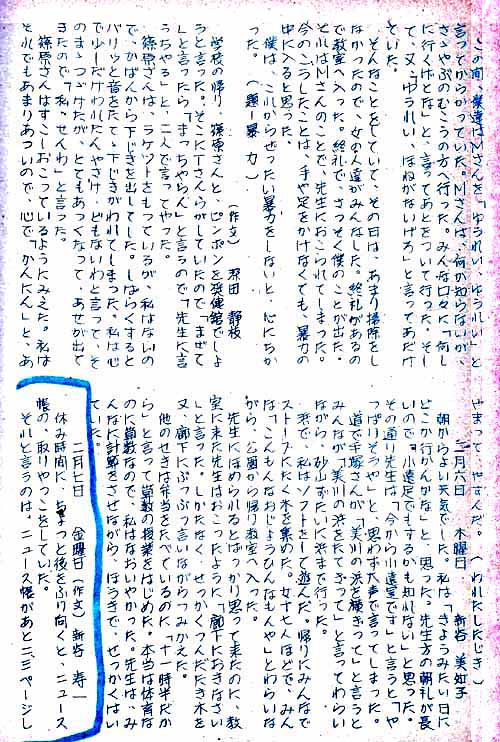 この間、僕達はMさんを「ゆうれい、ゆうれい」と
言ってからかっていた。Mさんは、何か知らないが、
さゝやぶのむこうの方へ行った。みんな口々に「何し
に行くけどな」と、言ってあとをついて行った。そし
て、又「ゆうれい、ほねがないげろ」と言ってあだけ
ていた。
そんなことをしていて、その日は、あまり掃除をし
なかったので、女の人達がみんなした。終礼があるの
で教室へ入った。終礼で、さっそく僕のことが出た。
それはMさんのことで、先生におこられてしまった。
今のこうしたことは、手や足をかけなくても、暴力の
中に入ると思った。
僕は、これからぜったい暴力をしないと、心にちか
った。 (題ー暴力)
(作文) 深田 静枝
学校の帰り、篠原さんと、ピンポンを発健館でしよ
うと言った。そこにTさんらがしていたので「まぜて
」と言ったら「まっちゃらん」と言うので「先生に言
うちゃる」と、二人で言ってやった。
篠原さんは、ラケットをもっているが、私はないの
で、かばんから下じきを出してした。しばらくすると
バリッと音をたてゝ下じきがわれてしまった。私は心
でゆーだけわれたんやさけ、どもないわと言って、そ
のまゝつゞけたが、とてもあつくなって、あせが出て
きたので「私、せんわ」と言った。
篠原さんはすこーおこっているようにみえた。私は
それでもあまりあついので、心で「かんにん」と、あ
やまって、やすんだ。 (われたしたじき)
二月六日 木曜日 新谷 美知子
朝からよい天気でした。私は「きょうみたい日に
どこか行かんかな」と、思った。先生方の朝礼が長
いので「小遠足でもするかも知れない」と思った。
その通り先生は、「今から小遠足です」と言うと「や
っぱりそうや」と、思わず大声で言ってしまった。
道で手塚さんが「美川の浜を稼ぎって」と言うと
みんなが「美川の浜をたてきって」と言ってわらい
ながら、砂山ずたいに浜まで行った。
浜で、私はソフトをして遊んだ。帰りにみんなで
ストーブにたく木を集めた。女十七人ほどで、みん
な「こんもんなおじょうひんなもんや」とわらいな
がら、公園から帰り教室へ入った。
先生にほめられるとばっかり思って来たのに、教
室に来た先生はおこったように「廊下におきなさい
」と言った。しかたなく、せっかくつんだたき木を
又、廊下にぶつぶつ言いながらつみかえた。
他のせきは弁当をたべているのに「十一時半だか
ら」と言って算数の授業をはじめた。本当は体育な
のに算数なので、私はなおいやかった。先生は、み
んなに計算をさせながら、ほうきで、せっかくはい
ていた。
二月七日 金曜日(作文)新谷 寿一
休み時間に、ちょっと後をふり向くと、ニュース
帳の、取りやっこをしていた。
それと言うのは、ニュース帳があと二、三ページし